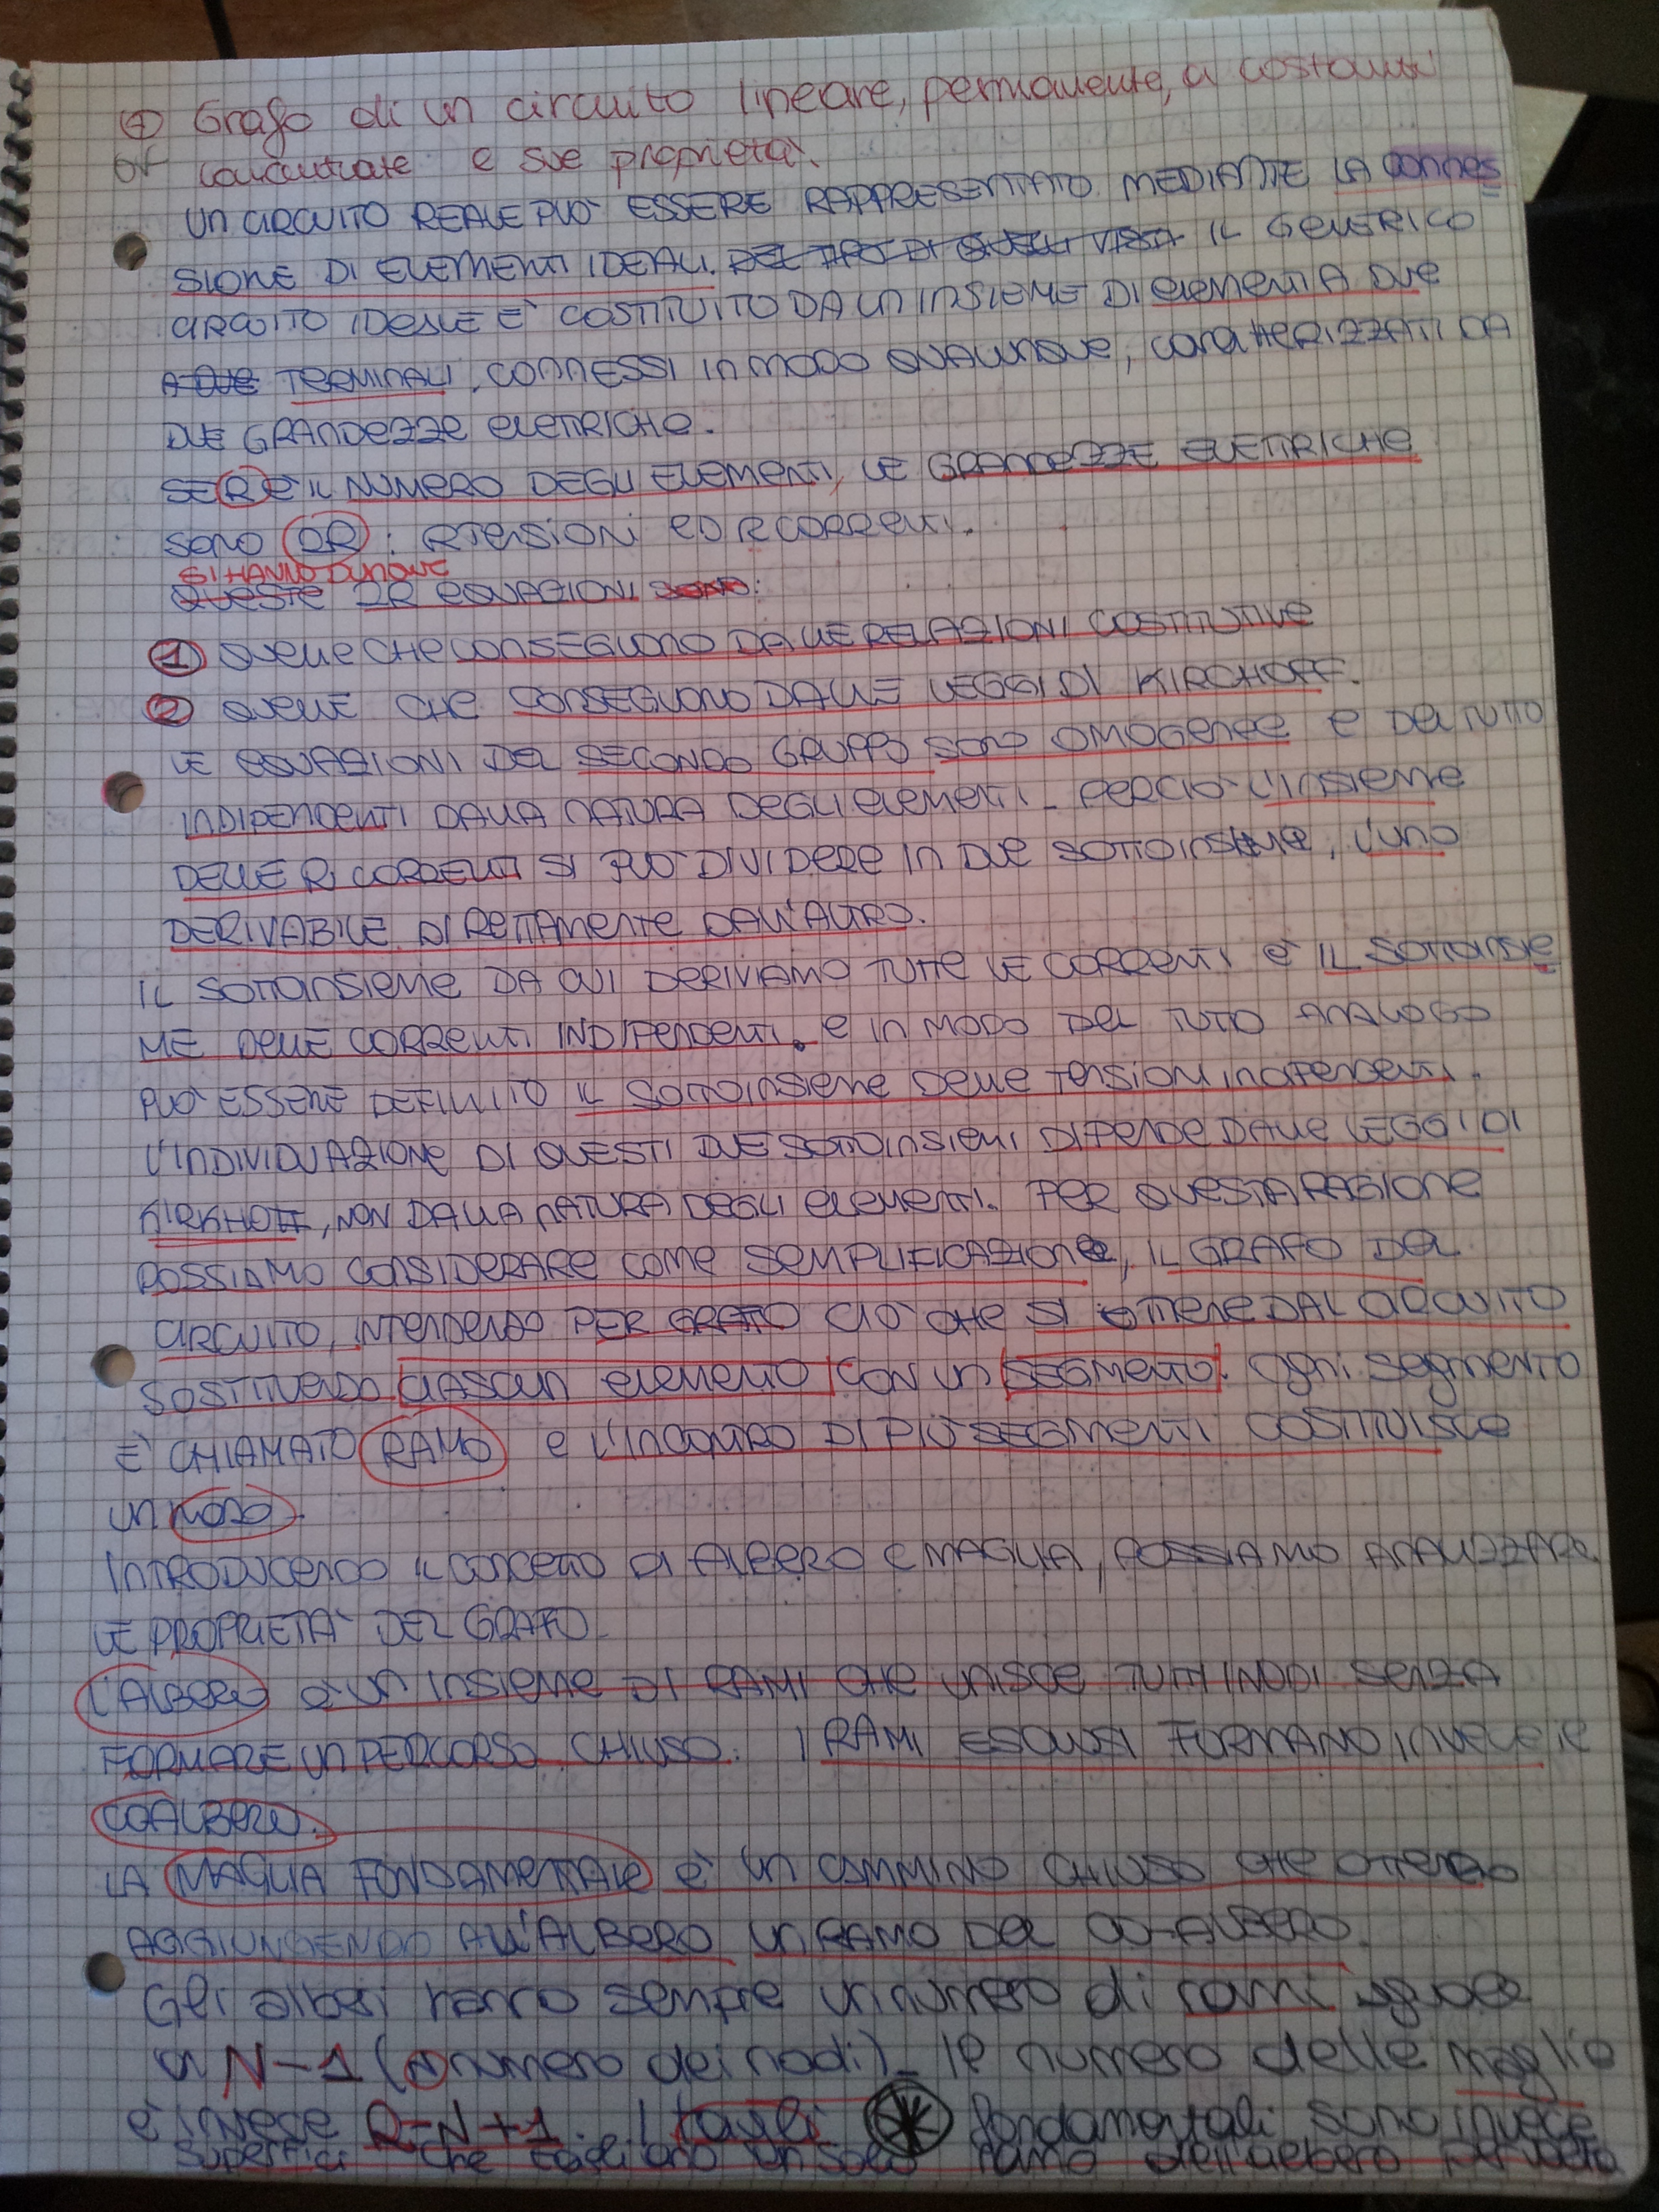 ④ Grafo di un circuito lineare, permanente, a costanti
concentrate e sue proprietà.
UN CIRCUITO REALE PUÒ ESSERE RAPPRESENTATO MEDIANTE LA CONNES
SIONE DI ELEMENTI IDEALI. DEL TIPO DI QUELLI VISTI IL GENERICO
CIRCUITO IDEALE È COSTITUITO DA UN INSIEME DI ELEMENTI A DUE
A DUE TERMINALI, CONNESSI IN MODO QUALUNQUE, CARATTERIZZATI DA
DUE GRANDEZZE ELETTRICHE.
SE R È IL NUMERO DEGLI ELEMENTI, LE GRANDEZZE ELETTRICHE
SONO 2R: R TENSIONI ED R CORRENTI.
SI HANNO DUNQUE
QUESTE 2R EQUAZIONI SONO:
① QUELLE CHE CONSEGUONO DALLE RELAZIONI COSTITUTIVE
② QUELLE CHE CONSEGUONO DALLE LEGGI DI KIRCHOFF.
LE EQUAZIONI DEL SECONDO GRUPPO SONO OMOGENEE E DEL TUTTO
INDIPENDENTI DALLA NATURA DEGLI ELEMENTI - PERCIÒ L'INSIEME
DELLE R CORRENTI SI PUÒ DIVIDERE IN DUE SOTTOINSIEME, L'UNO
DERIVABILE DIRETTAMENTE DALL'ALTRO.
IL SOTTOINSIEME DA CUI DERIVIAMO TUTTE LE CORRENTI È IL SOTTOINSIE
ME DELLE CORRENTI INDIPENDENTI. E IN MODO DEL TUTTO ANALOGO
PUÒ ESSERE DEFINITO IL SOTTOINSIEME DELLE TENSIONI INDIPENDENTI.
L'INDIVIDUAZIONE DI QUESTI DUE SOTTOINSIEMI DIPENDE DALLE LEGGI DI
KIRKHOFF, NON DALLA NATURA DEGLI ELEMENTI. PER QUESTA RAGIONE
POSSIAMO CONSIDERARE COME SEMPLIFICAZIONE, IL GRAFO DEL
CIRCUITO, INTENDENDO PER GRAFO CIÒ CHE SI OTTIENE DAL CIRCUITO
SOSTITUENDO CIASCUN ELEMENTO CON UN SEGMENTO. Ogni segmento
È CHIAMATO RAMO E L'INCONTRO DI PIÙ SEGMENTI COSTITUISCE
UN NODO.
INTRODUCENDO IL CONCETTO DI ALBERO E MAGLIA, POSSIAMO ANALIZZARE
LE PROPRIETÀ DEL GRAFO.
L'ALBERO È UN INSIEME DI RAMI CHE UNISCE TUTTI I NODI SENZA
FORMARE UN PERCORSO CHIUSO. I RAMI ESCLUSI FORMANO INVECE IL
COALBERO.
LA MAGLIA FONDAMENTALE È UN CAMMINO CHIUSO CHE OTTENGO
AGGIUNGENDO ALL'ALBERO UN RAMO DEL CO-ALBERO.
Gli alberi hanno sempre un numero di rami uguale
a N-1 (N numero dei nodi) - Il numero delle maglie
è invece R-N+1. I tagli fondamentali sono invece
superfici che tagliano un solo ramo dell'albero per volta